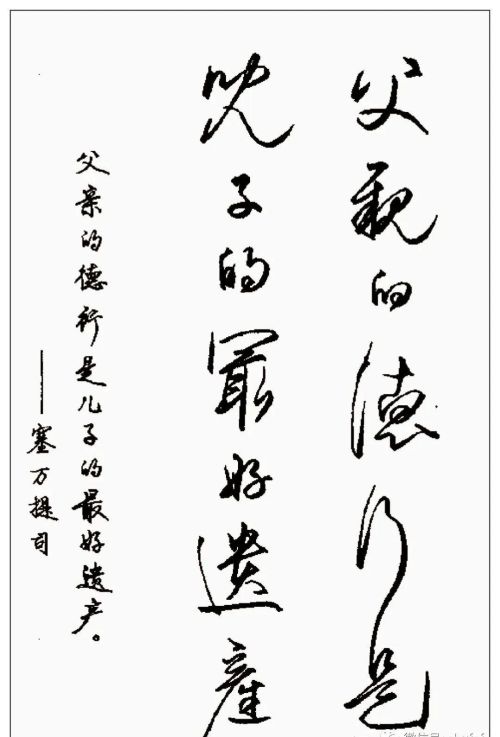 父親的德行是
兒子的最好遺產
父亲的德行是儿子的最好遗产。
——塞万提司